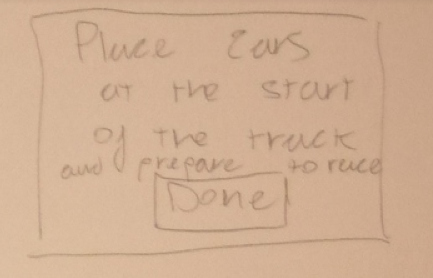 Place Cars
at the start
of the track
and prepare to race
Done